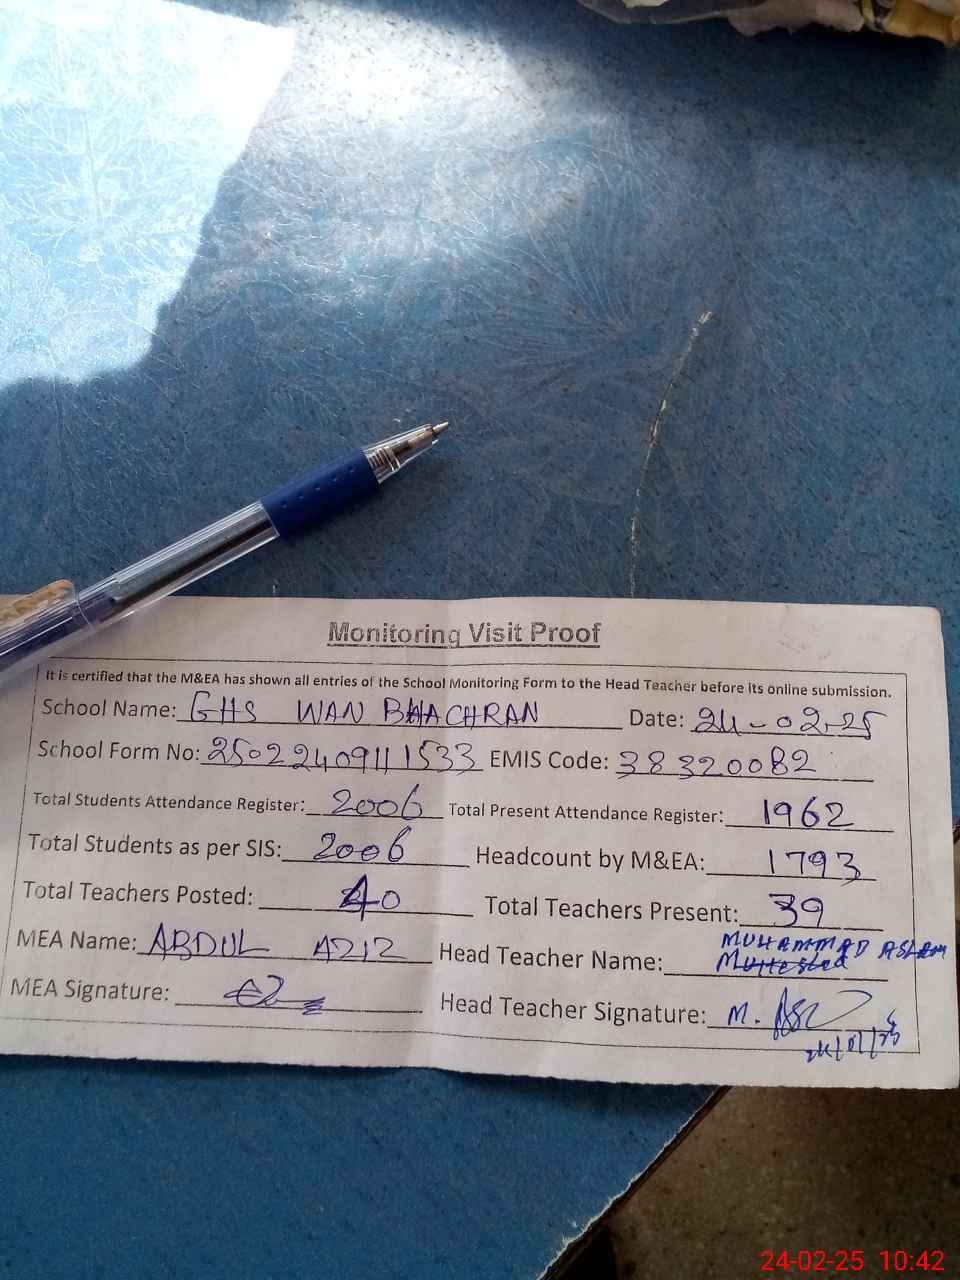 Monitoring Visit Proof
It is certified that the M&EA has shown all entries of the School Monitoring Form to the Head Teacher before its online submission.
School Name: GHS WAN BHACHRAN Date: 24-02-25
School Form No: 25022409111533 EMIS Code: 38320082
Total Students Attendance Register: 2006 Total Present Attendance Register: 1962
Total Students as per SIS: 2006 Headcount by M&EA: 1793
Total Teachers Posted: 40 Total Teachers Present: 39
MEA Name: ABDUL AZIZ Head Teacher Name: MUHAMMAD ASLAM
MEA Signature: Head Teacher Signature: M.
24-02-25 10:42